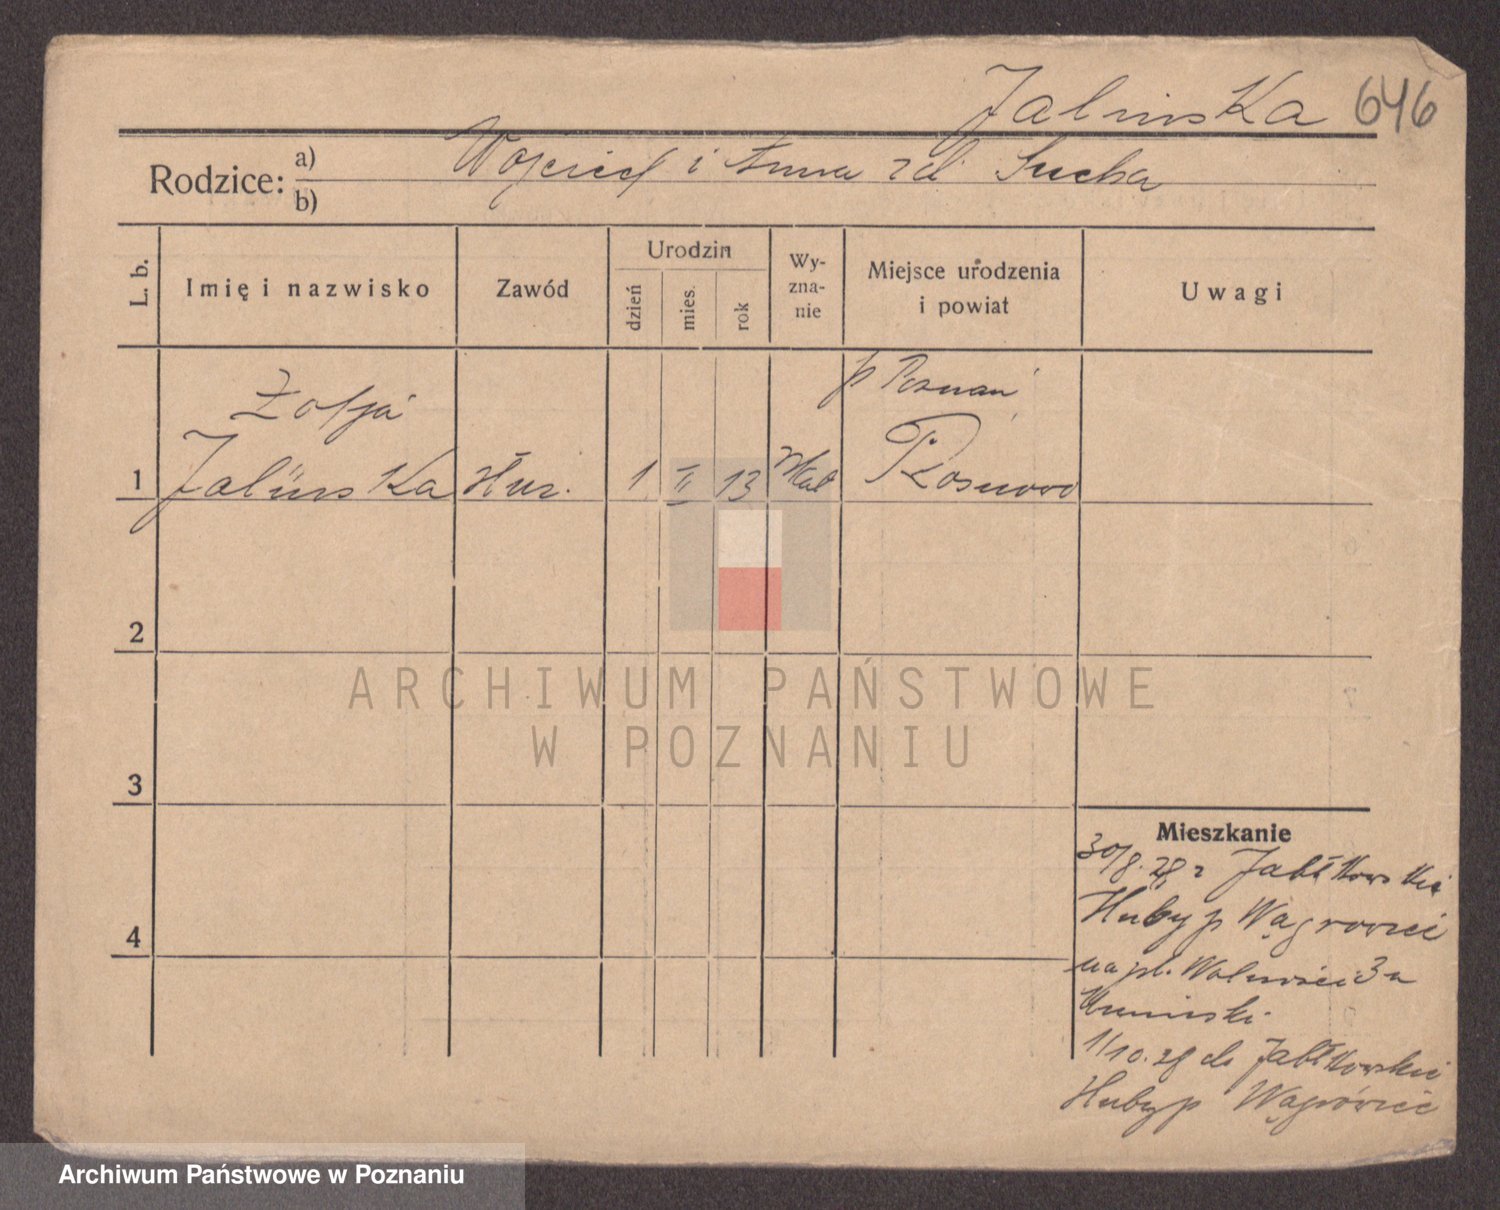 Jalinska 646
Rodzice: a) b)
Wojciech i Anna zd Sucha
L. b.
Imię i nazwisko
Zawód
Urodzin
dzień
mies.
rok
Wy-
zna-
nie
Miejsce urodzenia
i powiat
Uwagi
Zofja
p Poznań
1 Jalinska Służ. 1 II 13 kat Rosnowo
2
3
4
Mieszkanie
30/8.28 z Jabłkowskie
Huby p Wągrowiec
na pl. Wolności 3 u
1/10.28 do Jabłkowskie
Huby p Wągrówiec
ARCHIWUM PAŃSTWOWE
W POZNANIU
Archiwum Państwowe w Poznaniu